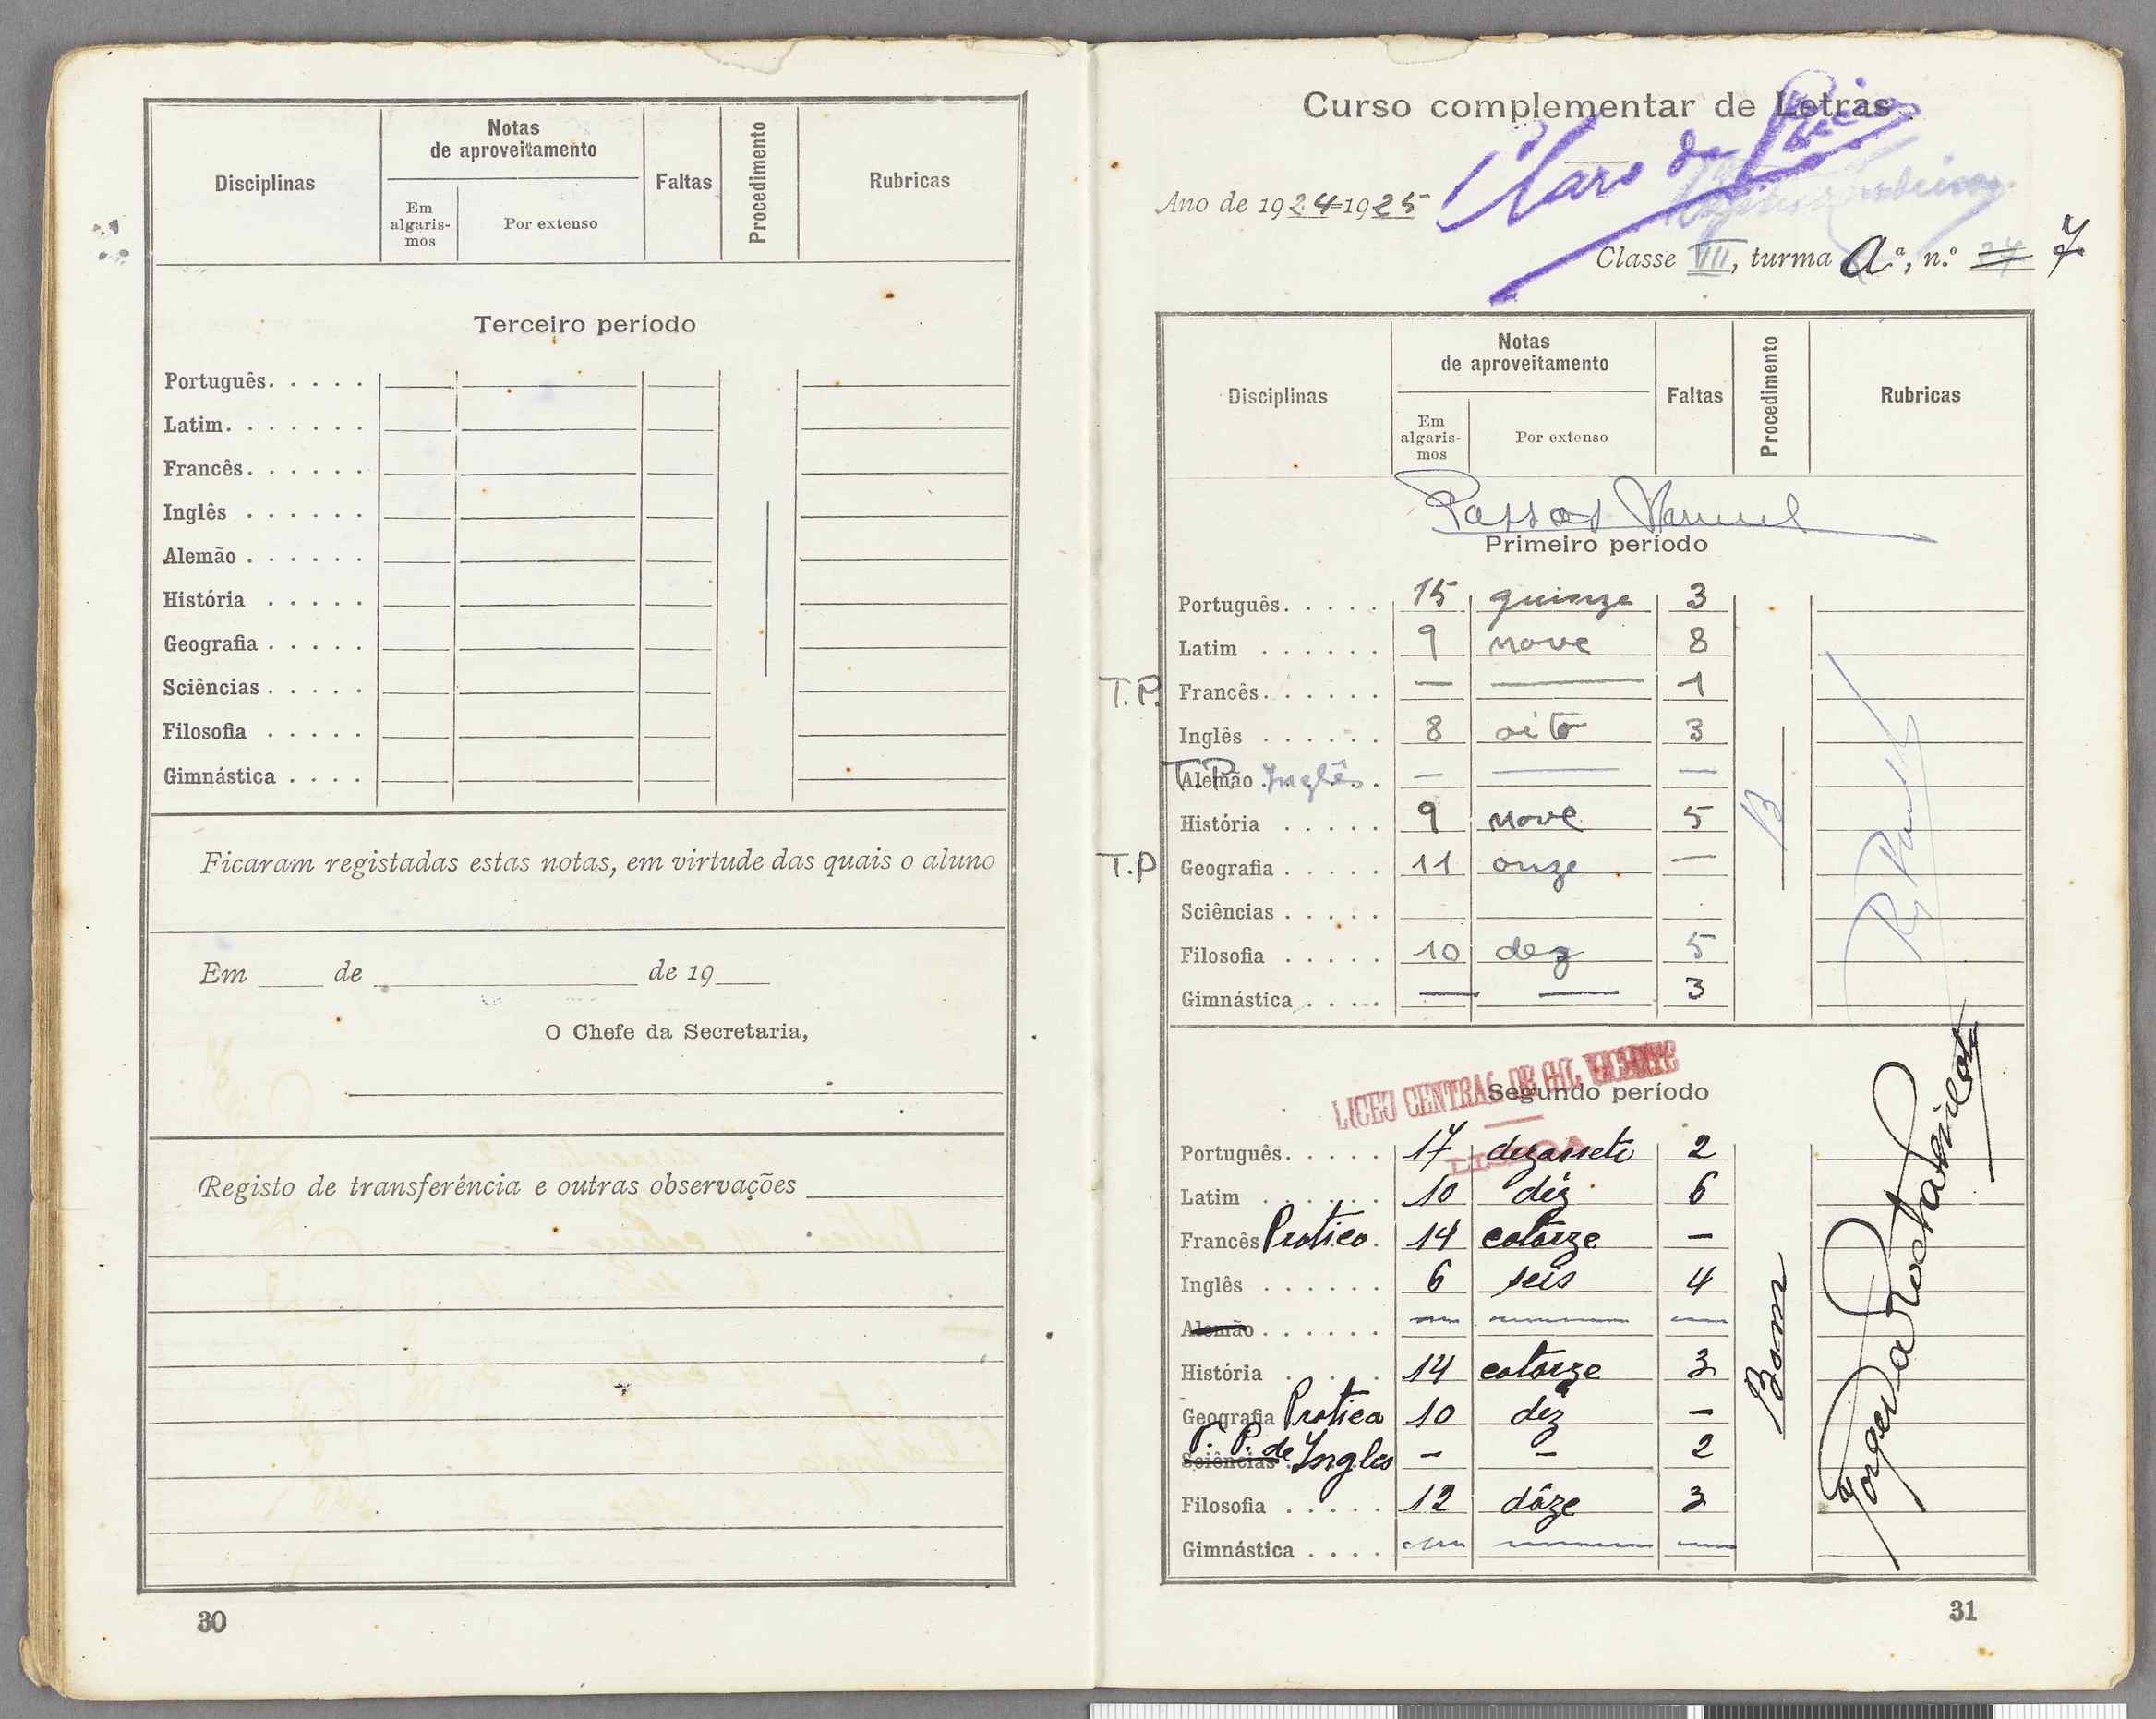 Disciplinas
Notas
de aproveitamento
Em
algaris-
mos
Por extenso
Faltas
Procedimento
Rubricas
Terceiro período
Português. . . . .
Latim. . . . . . .
Francês. . . . . .
Inglês . . . . . .
Alemão . . . . . .
História . . . . .
Geografia . . . . .
Sciências . . . . .
Filosofia . . . . .
Gimnástica . . . .
Ficaram registadas estas notas, em virtude das quais o aluno
Em ____ de ____ de 19___
O Chefe da Secretaria,
Registo de transferência e outras observações
30
Curso complementar de Letras
Ano de 1924-1925
Classe VII, turma A.ª, n.º 27 7
Disciplinas
Notas
de aproveitamento
Em
algaris-
mos
Por extenso
Faltas
Procedimento
Rubricas
Passos Manuel
Primeiro período
Português. . . . . 15 quinze 3
Latim . . . . . . 9 nove 8
T.P. Francês. . . . . . — — 1
Inglês . . . . . . 8 oito 3
T.P. Alemão Inglês. — — —
História . . . . . 9 nove 5
T.P Geografia . . . . . 11 onze —
Sciências . . . . .
Filosofia . . . . . 10 dez 5
Gimnástica . . . . — — 3
B
LICEU CENTRAL DE GIL VICENTE
LISBOA
Segundo período
Português. . . . . 17 dezassete 2
Latim . . . . . . 10 déz 6
Francês Pratico. 14 catorze —
Inglês . . . . . . 6 seis 4
Alemão . . . . . .
História . . . . . 14 catorze 3
Geografia Pratica 10 déz —
Sciências T. P. de Ingles — — 2
Filosofia . . . . . 12 dôze 3
Gimnástica . . . .
Bom
31